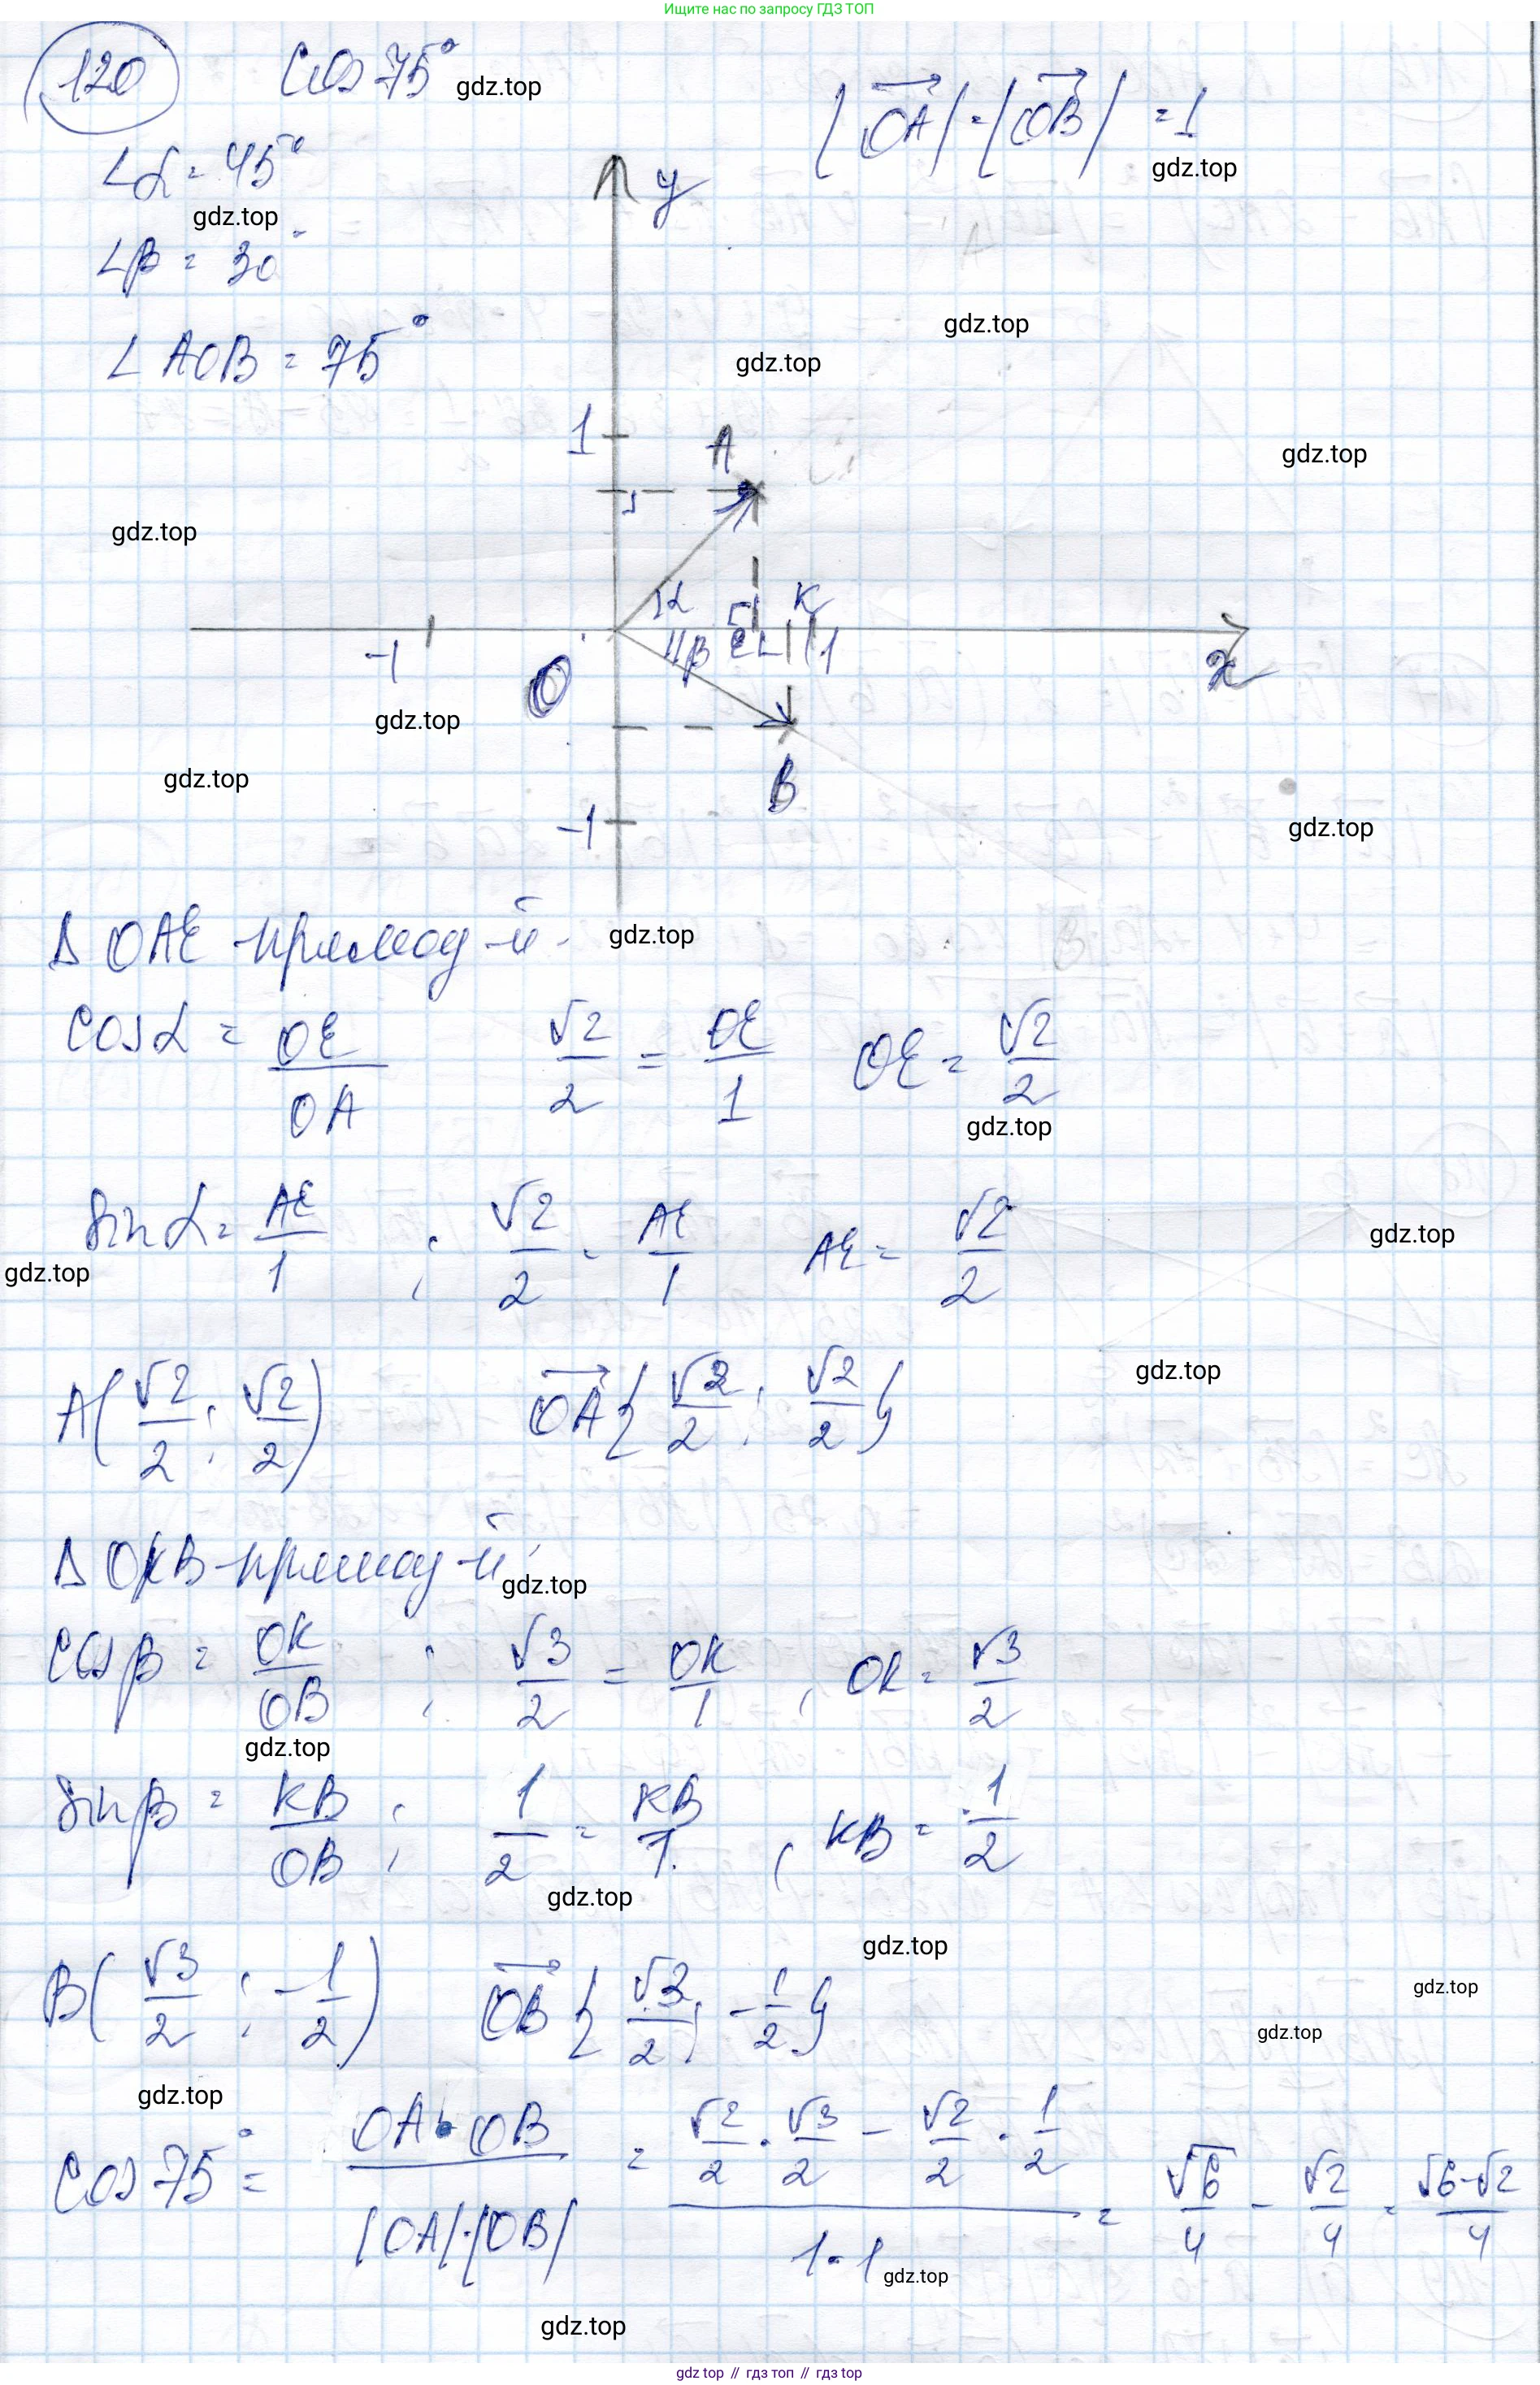 Ищите нас по запросу ГДЗ ТОП
120 cos 75° gdz.top
|OA| = |OB| = 1
gdz.top
∠α = 45°
gdz.top
∠β = 30°
∠AOB = 75°
y
gdz.top
gdz.top
1 A
gdz.top
gdz.top
α E K
-1 O β 1 x
gdz.top
gdz.top
B
-1
gdz.top
Δ OAE - прямоу-й. gdz.top
cos α = OE/OA √2/2 = OE/1 OE = √2/2
gdz.top
sin α = AE/1 ; √2/2 = AE/1 AE = √2/2
gdz.top
gdz.top
A(√2/2 ; √2/2) OA {√2/2 ; √2/2}
gdz.top
Δ OKB - прямоу-й,
gdz.top
cos β = OK/OB ; √3/2 = OK/1 , OK = √3/2
gdz.top
sin β = KB/OB ; 1/2 = KB/1. , KB = 1/2
gdz.top
gdz.top
B(√3/2 ; -1/2) OB {√3/2 ; -1/2}
gdz.top
gdz.top
gdz.top
cos 75° = OA · OB / |OA|·|OB| = (√2/2 · √3/2 - √2/2 · 1/2) / 1·1 = √6/4 - √2/4 = √6-√2/4
gdz.top
gdz.top
gdz top // гдз топ // гдз top